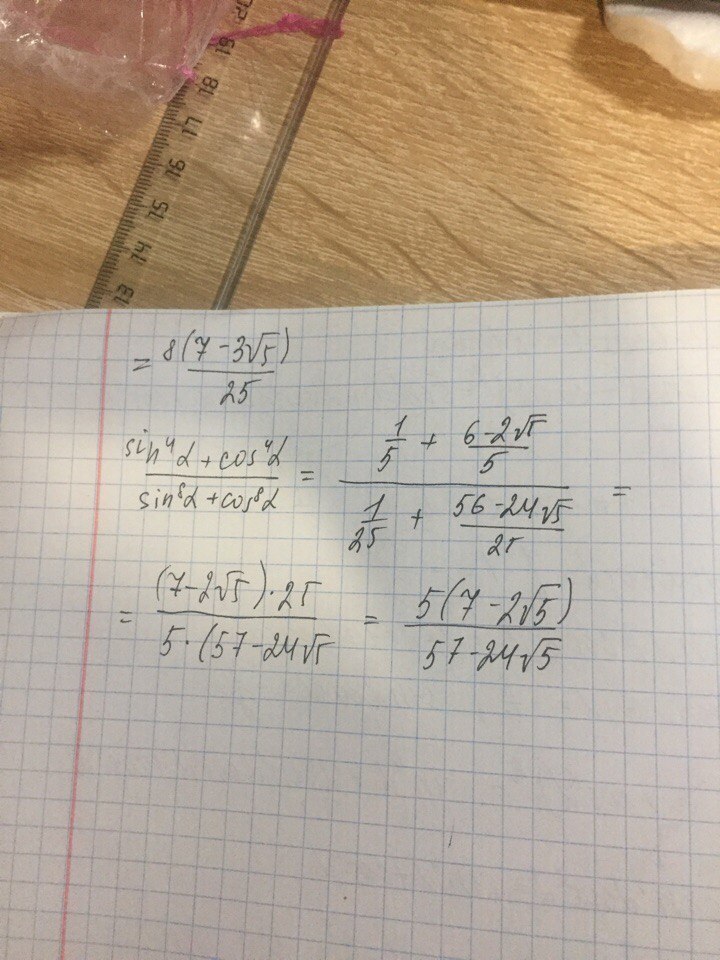 20
19
18
17
16
15
14
13
= 8(7 - 3√5) / 25
(sin⁴α + cos⁴α) / (sin⁸α + cos⁸α) = (1/5 + (6-2√5)/5) / (1/25 + (56-24√5)/25) =
= (7-2√5)·25 / 5·(57-24√5 = 5(7-2√5) / 57-24√5